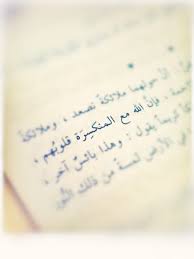 إنَّ حولهما ملائكةً تصعد ، وملائكةً
فإنَّ اللهَ مع المنكسِرَة قلوبُهم ،
يقول : وهذا بائسٌ آخر ،
الأرض لمسةً من ذلك النُّور